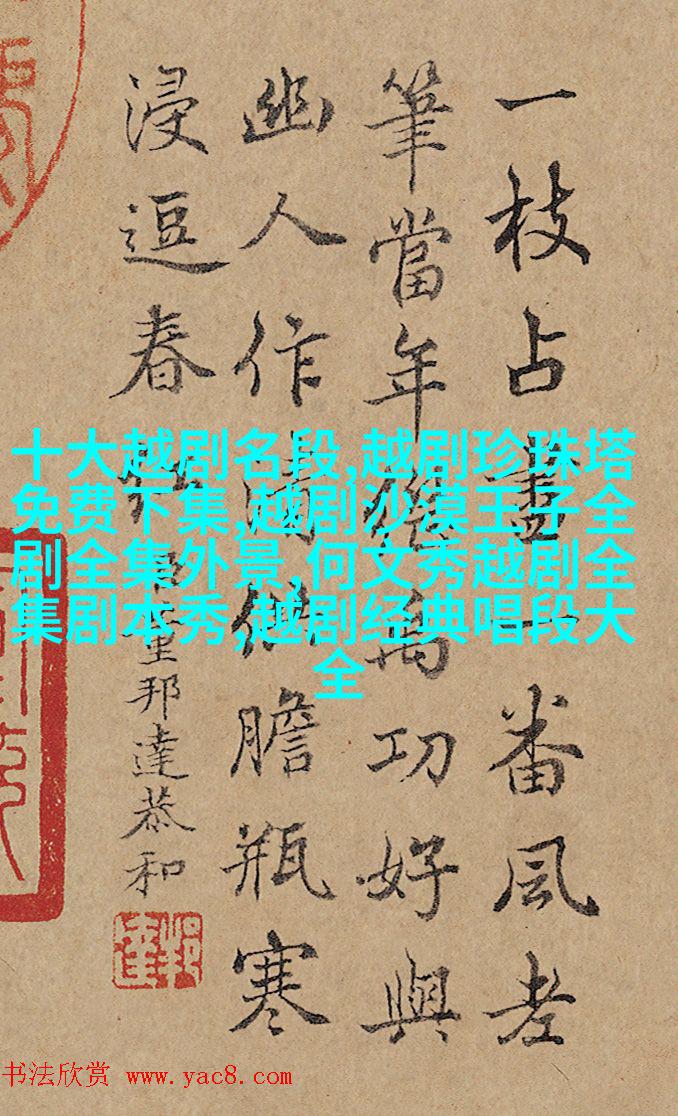 一枝占盡一番風老
筆當年馬功好與
幽人作清供膽瓶寒
浸逗春紅臣董邦達恭和
十大越剧名段,越剧珍珠塔
免费下集,越剧沙漠王子全
剧全集外景,何文秀越剧全
集剧本秀,越剧经典唱段大
全
邦達
书法欣赏 www.yac8.com